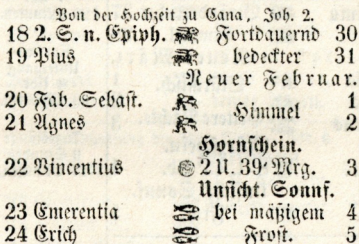 Von der Hochzeit zu Cana, Joh. 2.
18 2. S. n. Epiph. Fortdauernd 30
19 Pius bedeckter 31
Neuer Februar.
20 Fab. Sebast. Himmel 1
21 Agnes 2
Hornschein.
22 Vincentius 2 U. 39 Mrg. 3
Unsicht. Sonnf.
23 Emerentia bei mäßigem 4
24 Erich Frost. 5